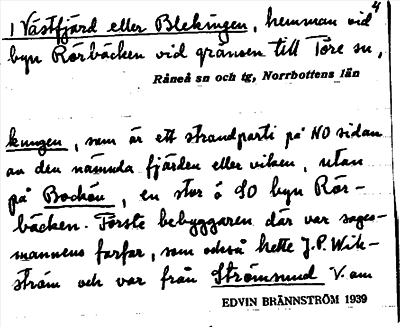 I Västfjärd eller Blekingen, hemman vid 4
byn Rörbäcken vid gränsen till Töre sn,
Råneå sn och tg, Norrbottens län
kningen, som är ett strandparti på NO sidan
av den nämnda fjärden eller viken, utan
på Bockön, en stor ö SO byn Rör-
bäcken. Förste bebyggaren där var sages-
mannens farfar, som också hette J.P. Wik-
ström och var från Strömsund V. om
EDVIN BRÄNNSTRÖM 1939